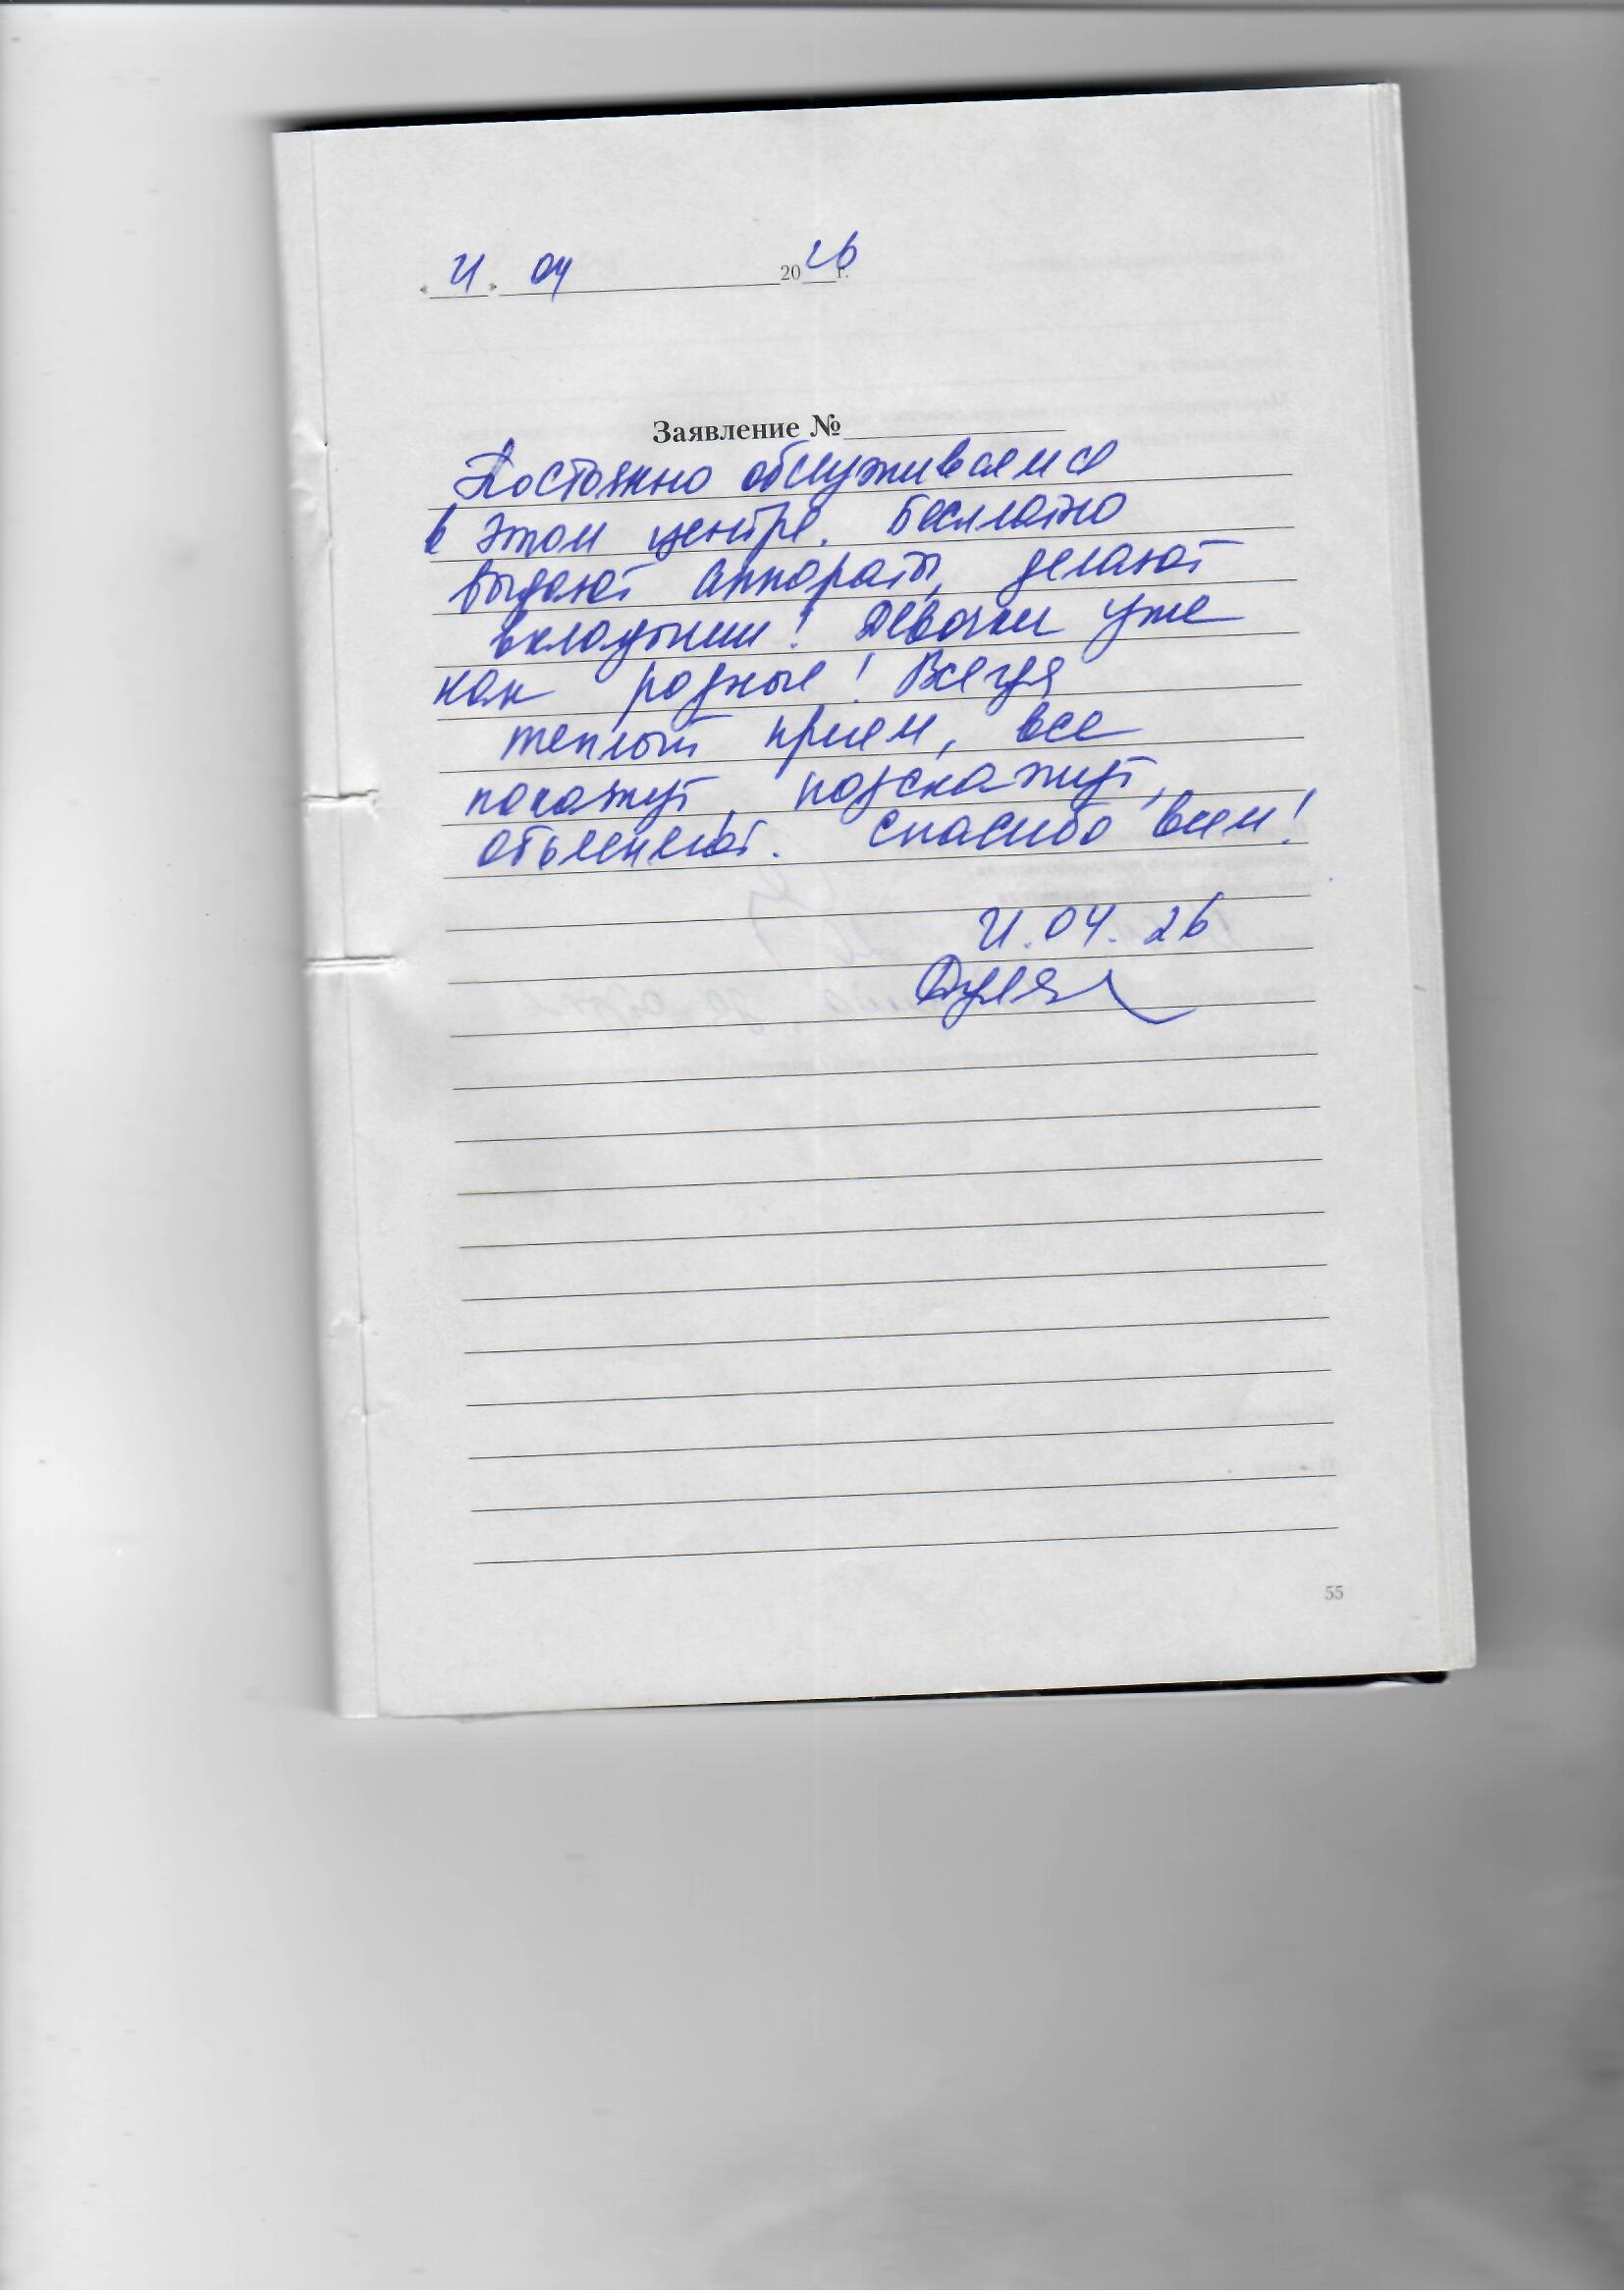 «21» 04 2026 г.
Заявление №
Постоянно обслуживаемся
в этом центре. Бесплатно
выдают аппараты, делают
вкладыши! Девочки уже
как родные! Всегда
теплый прием, все
покажут, подскажут,
объяснят. Спасибо всем!
21.04.26
55